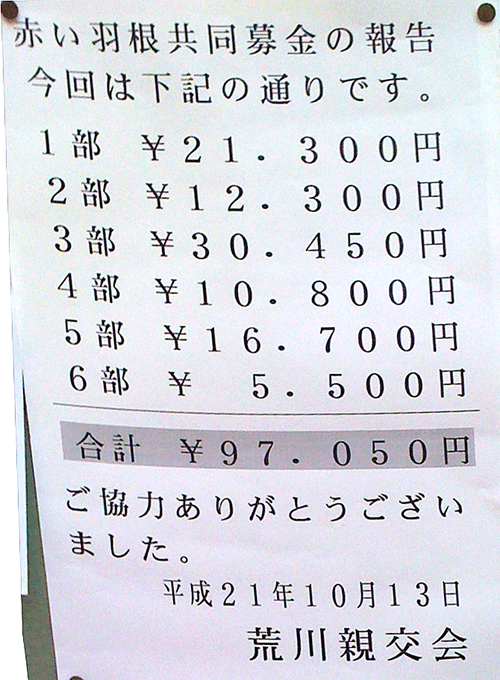 赤い羽根共同募金の報告
今回は下記の通りです。
1部 ￥21．300円
2部 ￥12．300円
3部 ￥30．450円
4部 ￥10．800円
5部 ￥16．700円
6部 ￥ 5．500円
合計 ￥97．050円
ご協力ありがとうござい
ました。
平成21年10月13日
荒川親交会